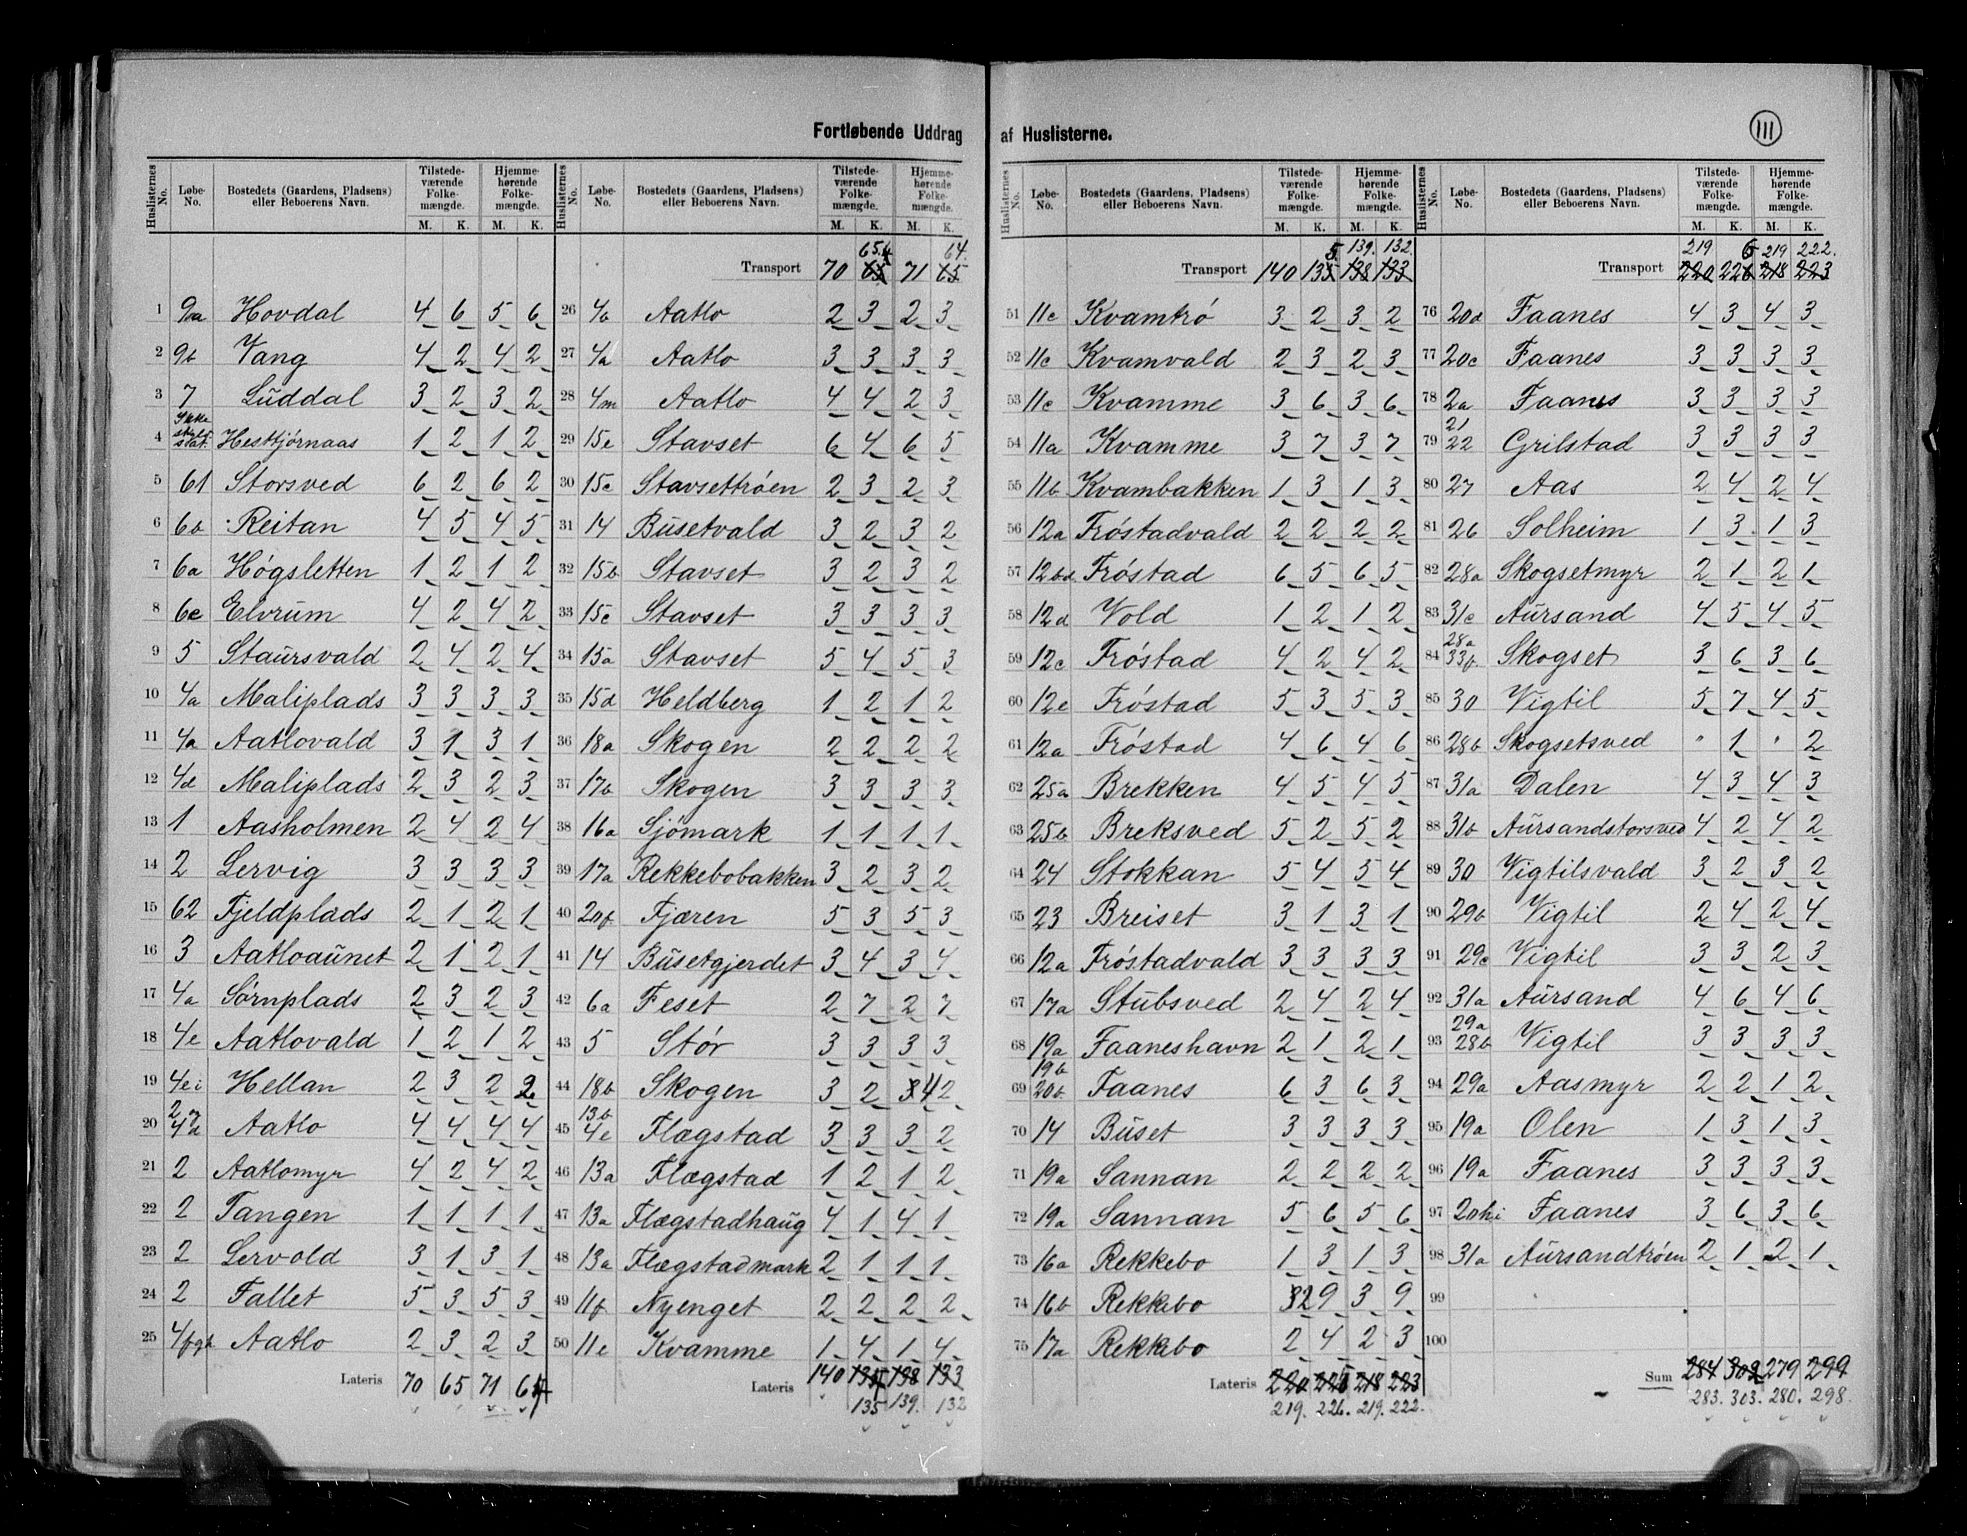 Fortløbende Uddrag af Huslisterne.
111
Huslisternes No. | Løbe-No. | Bostedets (Gaardens, Pladsens) eller Beboerens Navn. | Tilstedeværende Folkemængde. M. K. | Hjemmehørende Folkemængde. M. K.
1 9a Hovdal 4 6 5 6
2 9b Vang 4 2 4 2
3 7 Luddal 3 2 3 2
4 Ikke skyldsat. Hesttjørnaas 1 2 1 2
5 61 Storsved 6 2 6 2
6 6b Reitan 4 5 4 5
7 6a Høgsletten 1 2 1 2
8 6c Elvrum 4 2 4 2
9 5 Staursvald 2 4 2 4
10 4a Maliplads 3 3 3 3
11 4a Aatlovald 3 1 3 1
12 4d Maliplads 2 3 2 3
13 1 Aasholmen 2 4 2 4
14 2 Lervig 3 3 3 3
15 62 Fjeldplads 2 1 2 1
16 3 Aatloaunet 2 1 2 1
17 4a Sørnplads 2 3 2 3
18 4e Aatlovald 1 2 1 2
19 4ei Hellan 2 3 2 2
20 Aatlo 4 4 4 4
21 2 Aatlomyr 4 2 4 2
22 2 Tangen 1 1 1 1
23 2 Lervold 3 1 3 1
24 2 Fallet 5 3 5 3
25 Aatlo 2 3 2 3
Lateris 70 65 71 64
65. 64.
Transport 70 65 71 65
26 4b Aatlo 2 3 2 3
27 4h Aatlo 3 3 3 3
28 4m Aatlo 4 4 2 3
29 15e Stavset 6 4 6 5
30 15c Stavsettrøen 2 3 2 3
31 14 Busetvald 3 2 3 2
32 15b Stavset 3 2 3 2
33 15c Stavset 3 3 3 3
34 15a Stavset 5 4 5 3
35 15d Heldberg 1 2 1 2
36 18a Skogen 2 2 2 2
37 17b Skogen 3 3 3 3
38 16a Sjømark 1 1 1 1
39 17a Rekkebobakken 3 2 3 2
40 20f Fjæren 5 3 5 3
41 14 Busetgjerdet 3 4 3 4
42 6a Feset 2 7 2 7
43 5 Stør 3 3 3 3
44 18b Skogen 3 2 4 2
45 13b 4e Flægstad 3 3 3 2
46 13a Flægstad 1 2 1 2
47 13a Flægstadhaug 4 1 4 1
48 13a Flægstadmark 2 1 1 1
49 11f Nyenget 2 2 2 2
50 11e Kvamme 1 4 1 4
Lateris 140 135 138 133
135 139. 132
5. 139. 132.
Transport 140 135 138 133
51 11c Kvamtrø 3 2 3 2
52 11c Kvamvald 2 3 2 3
53 11c Kvamme 3 6 3 6
54 11a Kvamme 3 7 3 7
55 11b Kvambakken 1 3 1 3
56 12a Frøstadvald 2 2 2 2
57 12bd Frøstad 6 5 6 5
58 12d Vold 1 2 1 2
59 12c Frøstad 4 2 4 2
60 12e Frøstad 5 3 5 3
61 12a Frøstad 4 6 4 6
62 25a Brekken 4 5 4 5
63 25b Breksved 5 2 5 2
64 24 Stokkan 5 4 5 4
65 23 Breiset 3 1 3 1
66 12a Frøstadvald 3 3 3 3
67 17a Stubsved 2 4 2 4
68 19a Faaneshavn 2 1 2 1
69 19b 20b Faanes 6 3 6 3
70 14 Buset 3 3 3 3
71 19a Sannan 2 2 2 2
72 19a Sannan 5 6 5 6
73 16a Rekkebo 1 3 1 3
74 16b Rekkebo 2 9 3 9
75 17a Rekkebo 2 4 2 3
Lateris 220 226 218 223
219. 226. 219. 222.
219 6 219 222.
Transport 220 226 218 223
76 20d Faanes 4 3 4 3
77 20c Faanes 3 3 3 3
78 2a Faanes 3 3 3 3
79 21 22 Grilstad 3 3 3 3
80 27 Aas 2 4 2 4
81 26 Solheim 1 3 1 3
82 28a Skogsetmyr 2 1 2 1
83 31c Aursand 4 5 4 5
84 28a 33b Skogset 3 6 3 6
85 30 Vigtil 5 7 4 5
86 28b Skogsetsved " 1 " 2
87 31a Dalen 4 3 4 3
88 31b Aursandstorsved 4 2 4 2
89 30 Vigtilsvald 3 2 3 2
90 29b Vigtil 2 4 2 4
91 29c Vigtil 3 3 2 3
92 31a Aursand 4 6 4 6
93 29a 28b Vigtil 3 3 3 3
94 29a Aasmyr 2 2 1 2
95 19a Olen 1 3 1 3
96 19a Faanes 3 3 3 3
97 20hi Faanes 3 6 3 6
98 31a Aursandtrøen 2 1 2 1
99
100
Sum 284 302 279 299
283. 303. 280. 298.